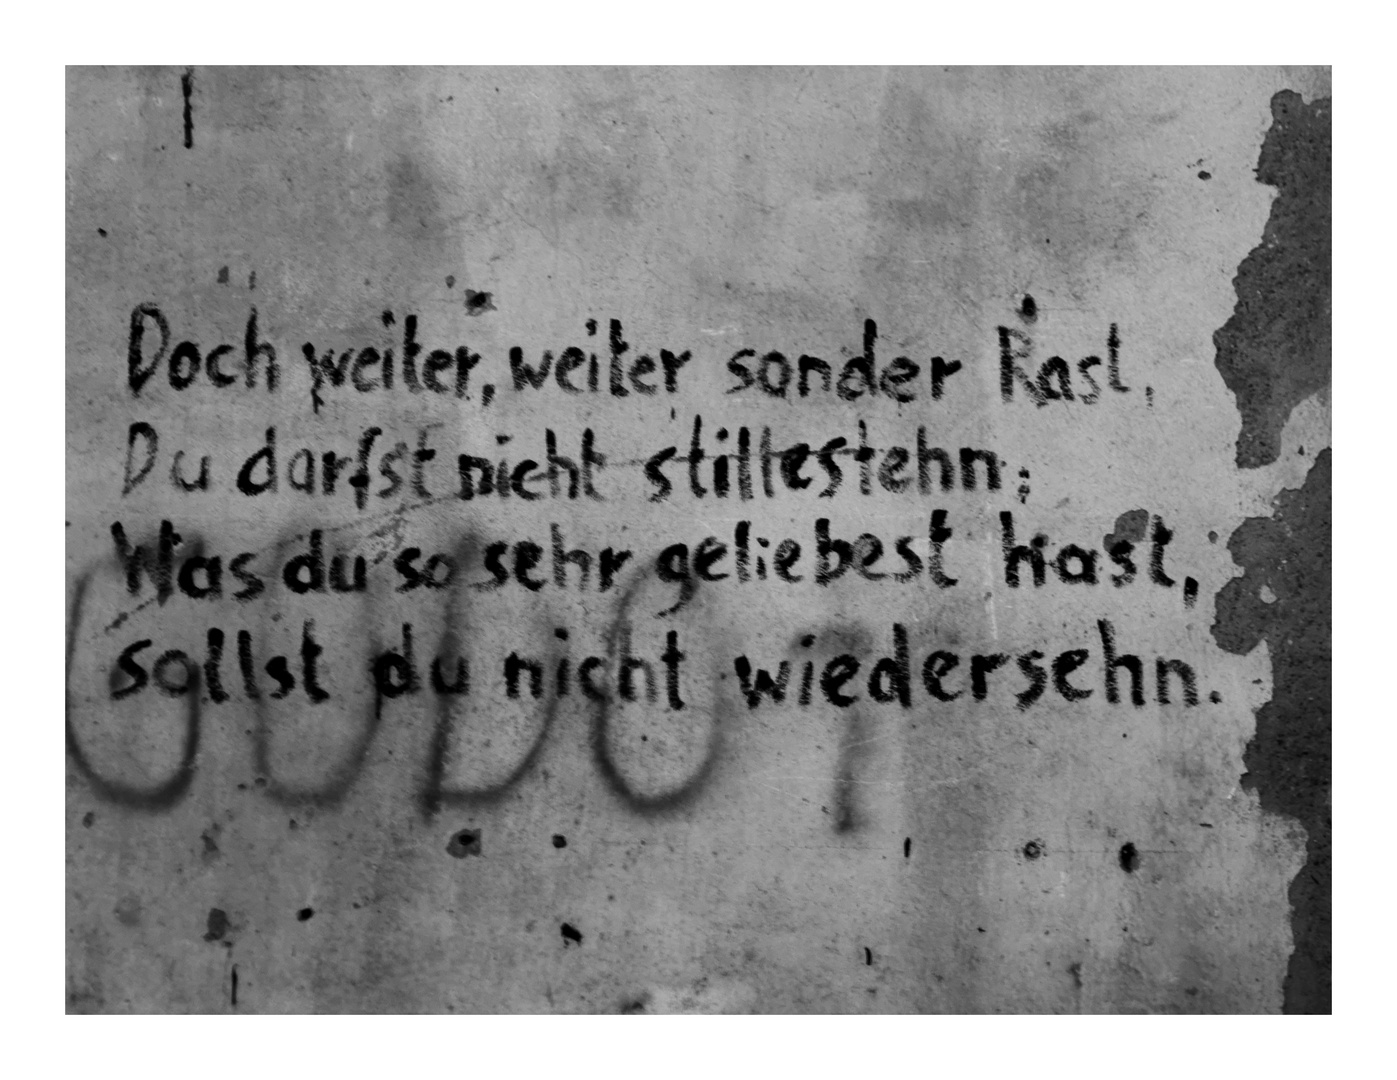 Doch weiter, weiter sonder Rast,
Du darfst nicht stillestehn;
Was du so sehr geliebest hast,
sollst du nicht wiedersehn.